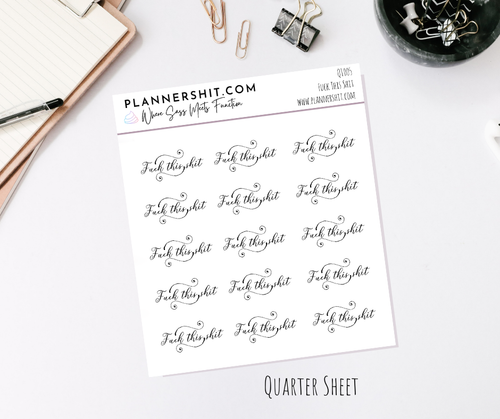 PLANNERSHIT.COM
Where Sass Meets Function
Q1105
Fuck This Shit
www.plannershit.com
Fuck this shit Fuck this shit Fuck this shit
Fuck this shit Fuck this shit Fuck this shit
Fuck this shit Fuck this shit Fuck this shit
Fuck this shit Fuck this shit Fuck this shit
Fuck this shit Fuck this shit Fuck this shit
Quarter Sheet